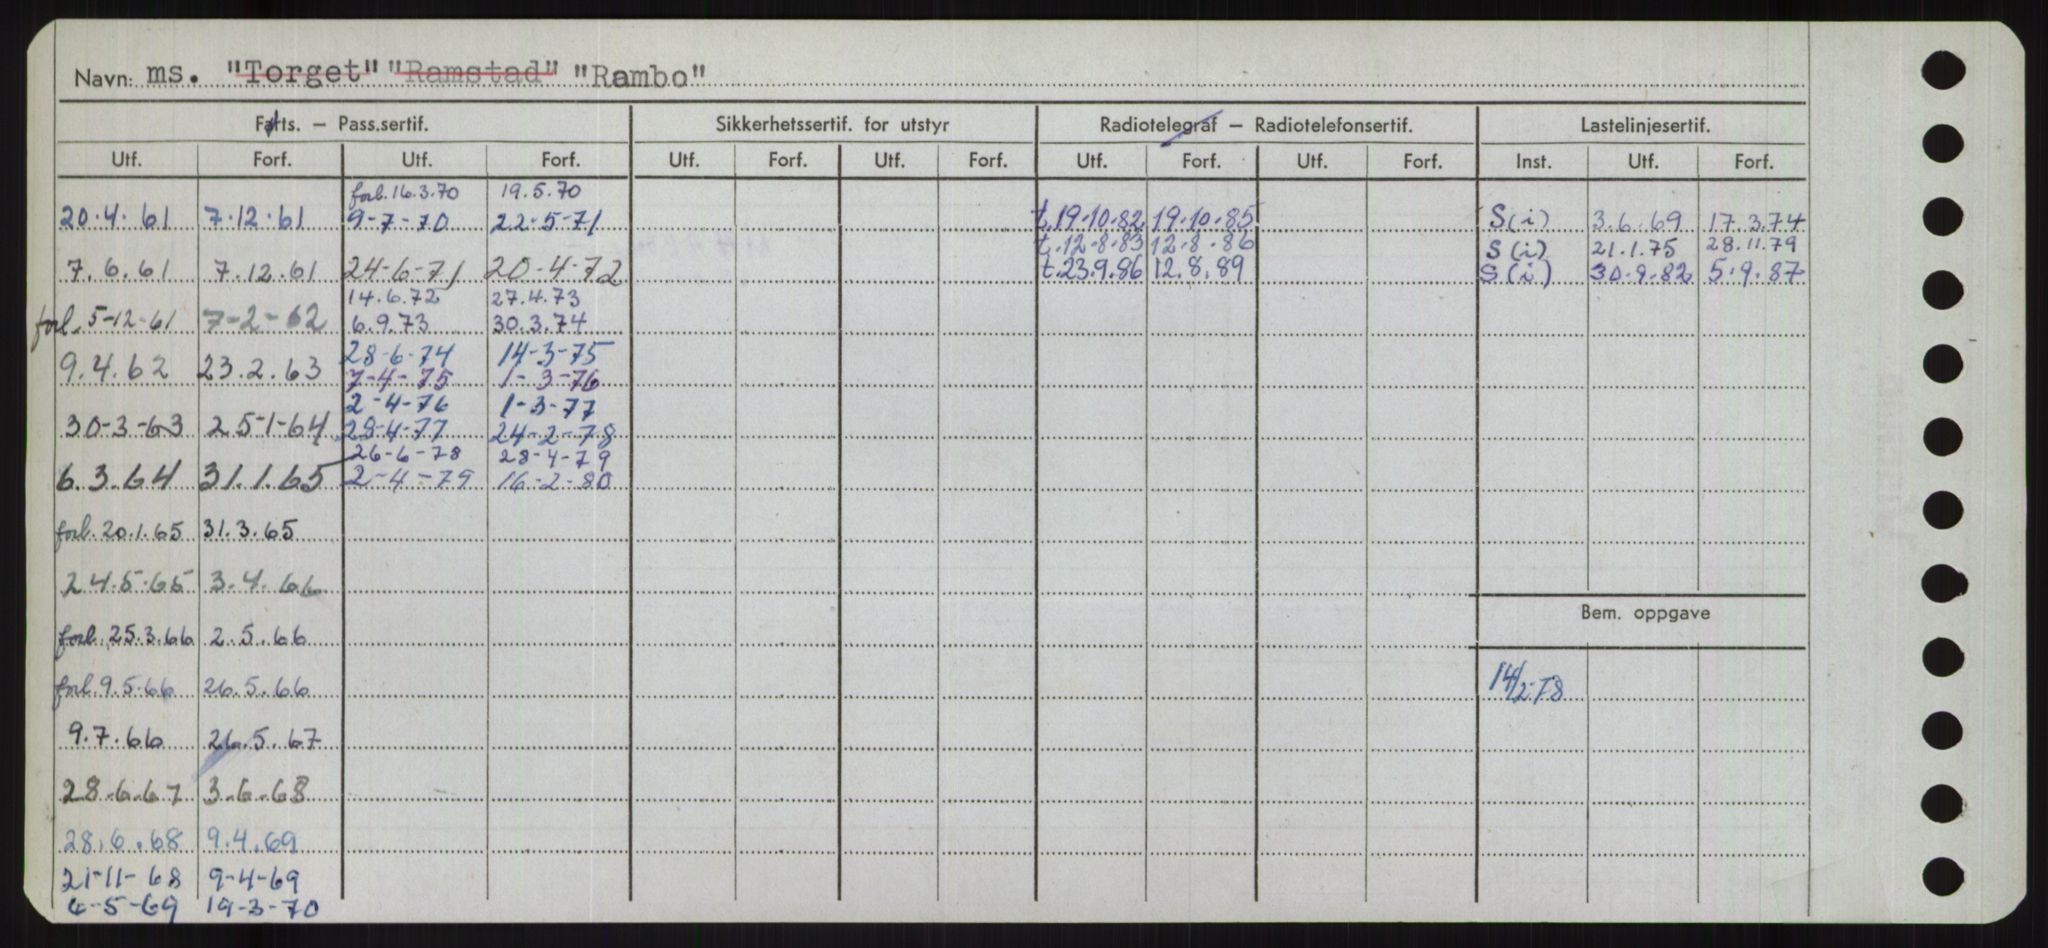 Navn: ms. "Torget" "Ramstad" "Rambo"
Farts. – Pass.sertif. Sikkerhetssertif. for utstyr Radiotelegraf – Radiotelefonsertif. Lastelinjesertif.
Utf. Forf. Utf. Forf. Utf. Forf. Utf. Forf. Utf. Forf. Utf. Forf. Inst. Utf. Forf.
forb. 16.3.70 19.5.70
20.4.61 7.12.61 9-7-70 22-5-71 t. 19.10.82 19.10.85 S(i) 3.6.69 17.3.74
t. 12.8.83 12.8.86 S(i) 21.1.75 28.11.79
7.6.61 7.12.61 24-6-71 20-4-72 t. 23.9.86 12.8.89 S(i) 30.8.82 5.9.87
14.6.72 27.4.73
forl. 5-12-61 7-2-62 6.9.73 30.3.74
28-6-74 14-3-75
9.4.62 23.2.63 7-4-75 1-3-76
2-4-76 1-3-77
30-3-63 25-1-64 29-4-77 24-2-78
26-6-78 28-4-79
6.3.64 31.1.65 2-4-79 16-2-80
forb. 20.1.65 31.3.65
24.5.65 3.4.66
Bem. oppgave
forb. 25.3.66 2.5.66
forl. 9.5.66 26.5.66 14/2-78
9.7.66 26.5.67
28.6.67 3.6.68
28.6.68 9.4.69
21-11-68 9-4-69
6-5-69 19-3-70